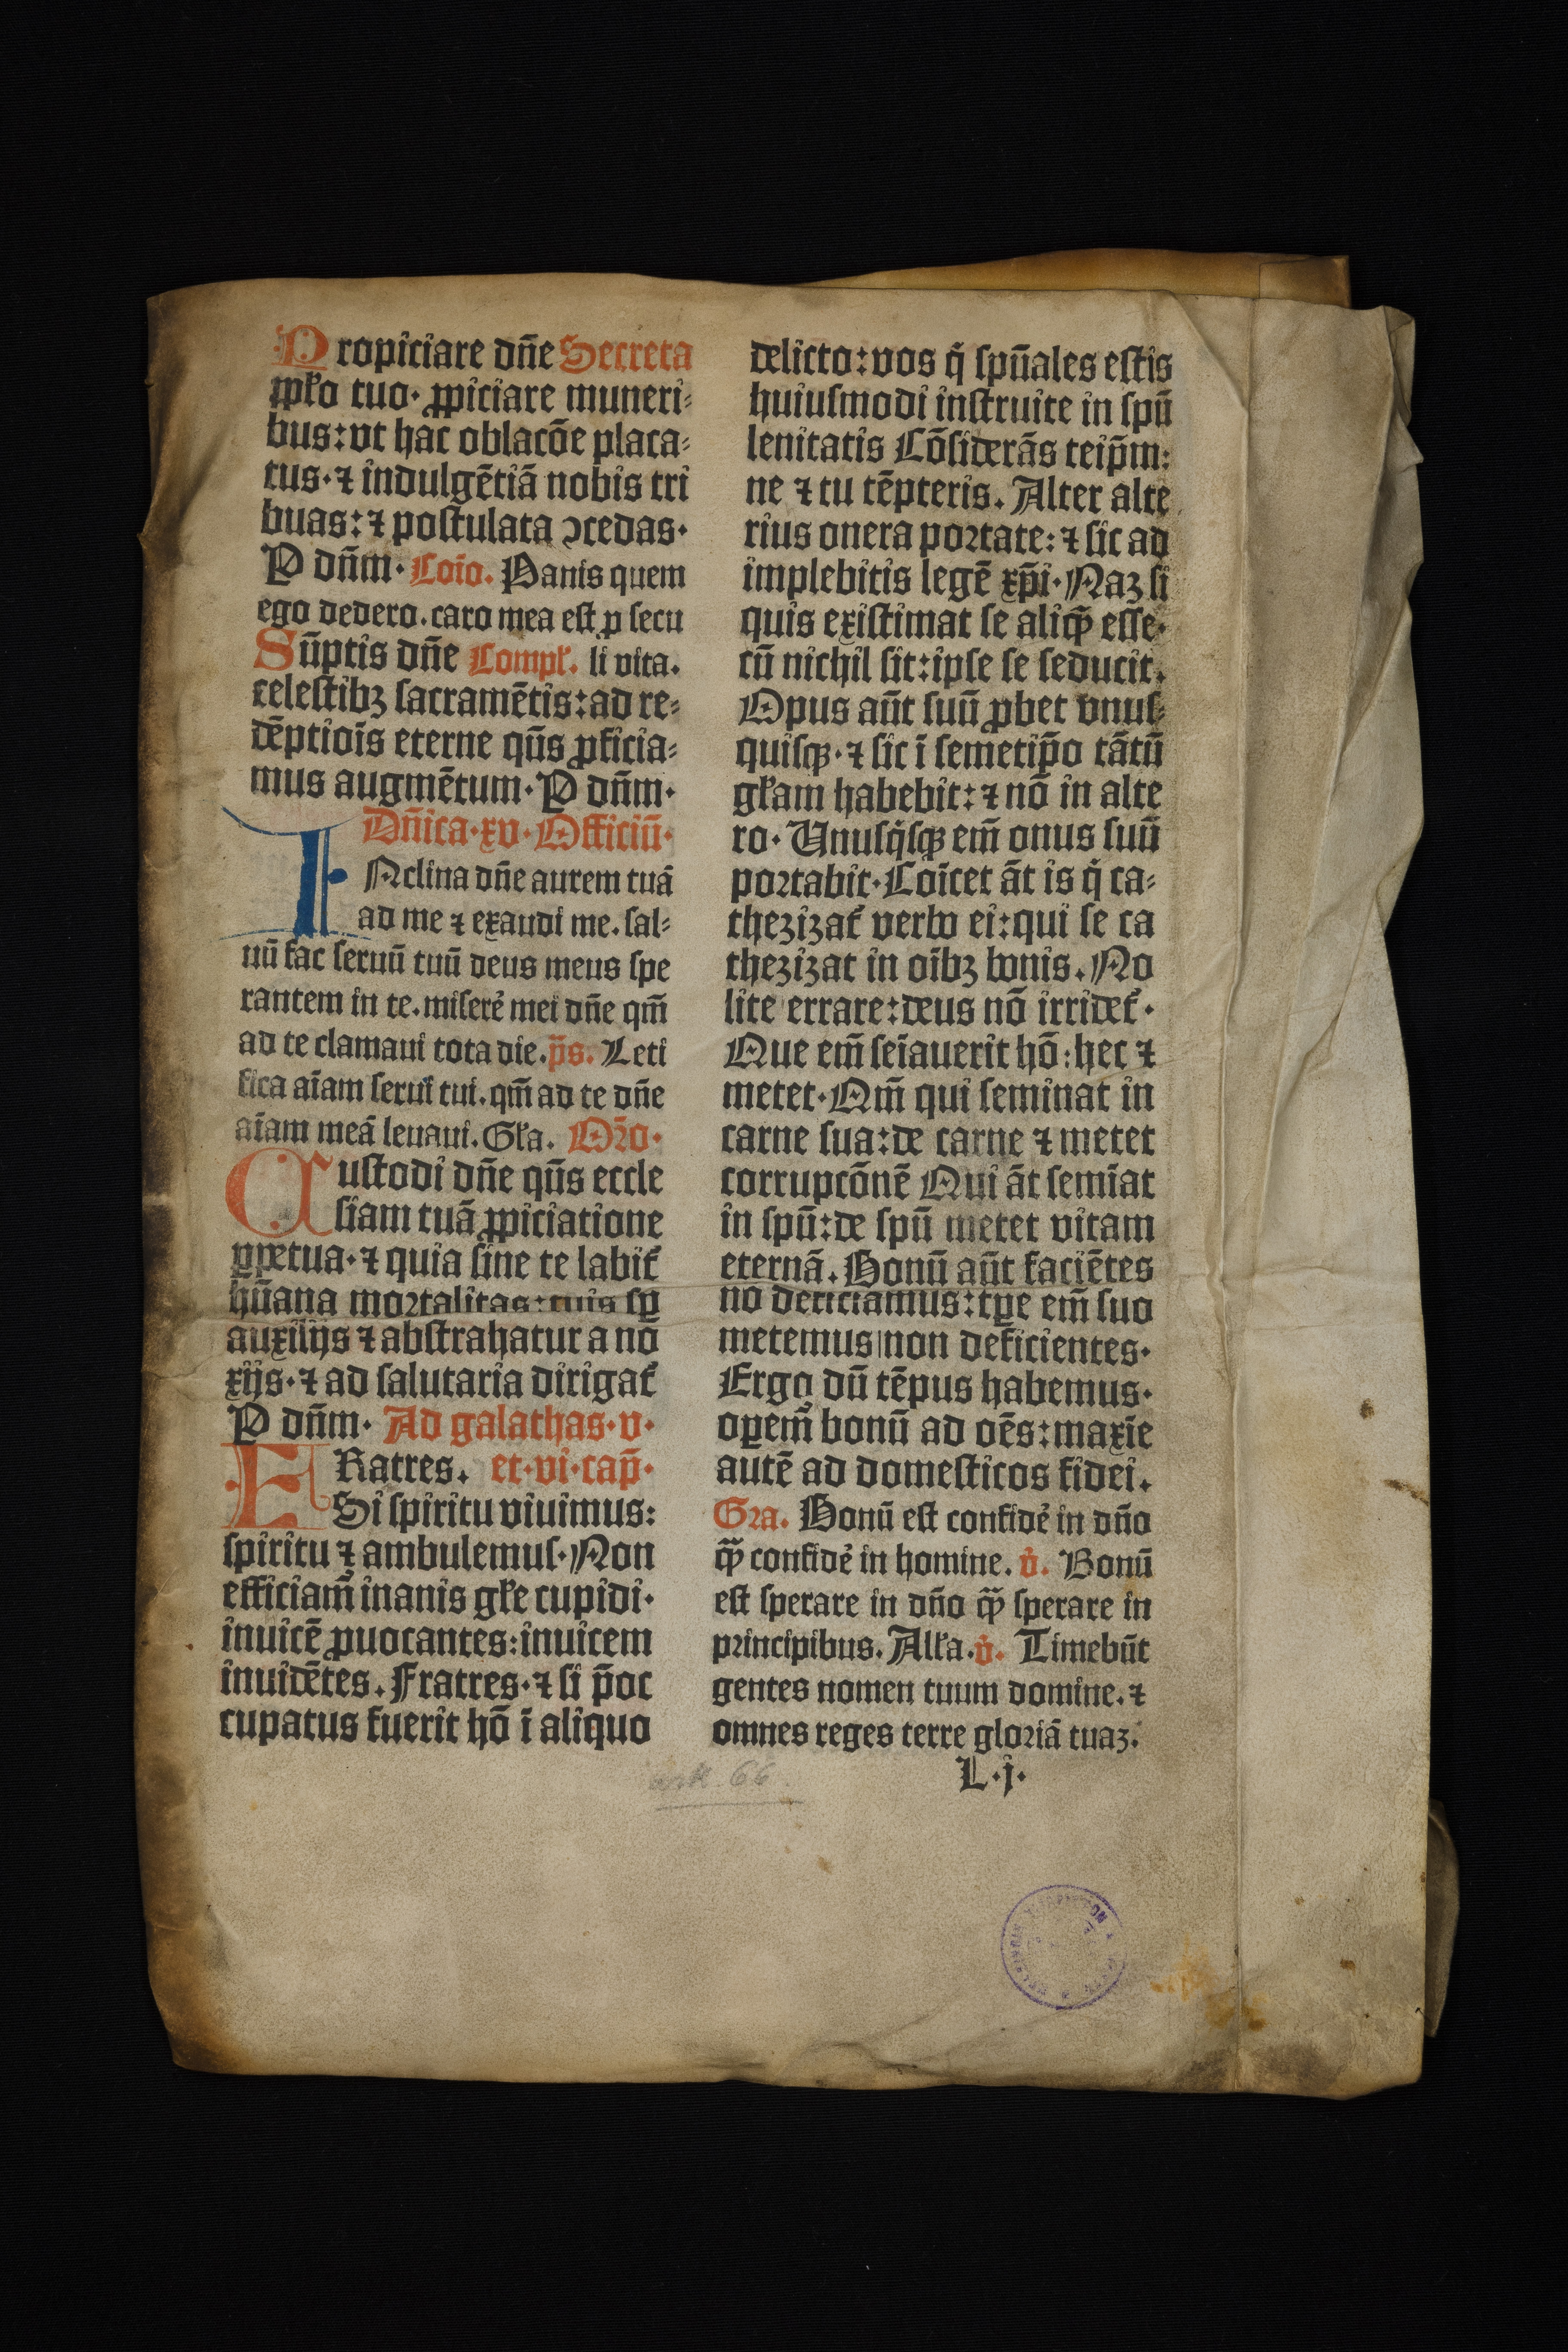 Propiciare dn̄e Secreta
pp̄lo tuo· ꝓpiciare muneri⸗
bus: vt hac oblacōe placa⸗
tus· ⁊ indulgētiā nobis tri
buas: ⁊ postulata ↄcedas·
P dn̄m· Coīo. Panis quem
ego dedero. caro mea est ꝓ secu
Sūptis dn̄e Compl̄. li vita.
celestibꝫ sacramētis: ad re⸗
dēptiōis eterne qūs ꝓficia⸗
mus augmētum· P dn̄m·
Dn̄ica· xv· Officiū·
INclina dn̄e aurem tuā
ad me ⁊ exaudi me. sal⸗
uū fac seruū tuū deus meus spe
rantem in te. miserē mei dn̄e qm̄
ad te clamaui tota die. p̄s. Leti
fica aīam serui tui. qm̄ ad te dn̄e
aīam meā leuaui. Gl̄a. Or̄o·
Custodi dn̄e qūs eccle
siam tuā ꝓpiciatione
ꝑpetua· ⁊ quia sine te labit᷑
hūana mortalitas: tuis sꝑ
auxilijs ⁊ abstrahatur a no
xijs· ⁊ ad salutaria dirigat᷑
P dn̄m· Ad galathas· v·
FRatres. et· vi· cap̄·
Si spiritu viuimus:
spiritu ⁊ ambulemus· Non
efficiam̄ inanis gl̄e cupidi·
inuicē ꝓuocantes: inuicem
inuidētes. Fratres· ⁊ si p̄oc
cupatus fuerit hō ī aliquo
delicto: vos q̇ spūales estis
huiusmodi instruite in spū
lenitatis Cōsiderās teip̄m:
ne ⁊ tu tēpteris. Alter alte
rius onera portate: ⁊ sic ad
implebitis legē xp̄i· Naꝫ si
quis existimat se aliqͥd esse·
cū nichil sit: ipse se seducit.
Opus aūt suū ꝓbet vnus⸗
quisqꝫ· ⁊ sic ī semetip̄o tātū
gl̄am habebit: ⁊ nō in alte
ro· Unusq̇sqꝫ em̄ onus suū
portabit· Coīcet āt is q̇ ca⸗
thezizat᷑ verbo ei: qui se ca
thezizat in oībꝫ bonis. No
lite errare: deus nō irridet᷑·
Que em̄ seīauerit hō: hec ⁊
metet· Qm̄ qui seminat in
carne sua: de carne ⁊ metet
corrupcōnē Qui āt semīat
in spū: de spū metet vitam
eternā. Bonū aūt faciētes
nō deficiamus: tꝑe em̄ suo
metemus non deficientes·
Ergo dū tēpus habemus·
oꝑem̄ bonū ad oēs: maxīe
autē ad domesticos fidei.
Gra. Bonū est confidē in dn̄o
qͣꝫ confidē in homine. v̇. Bonū
est sperare in dn̄o qͣꝫ sperare in
principibus. All̄a. v̇. Timebūt
gentes nomen tuum domine. ⁊
omnes reges terre gloriā tuaꝫ.
L·j·
66